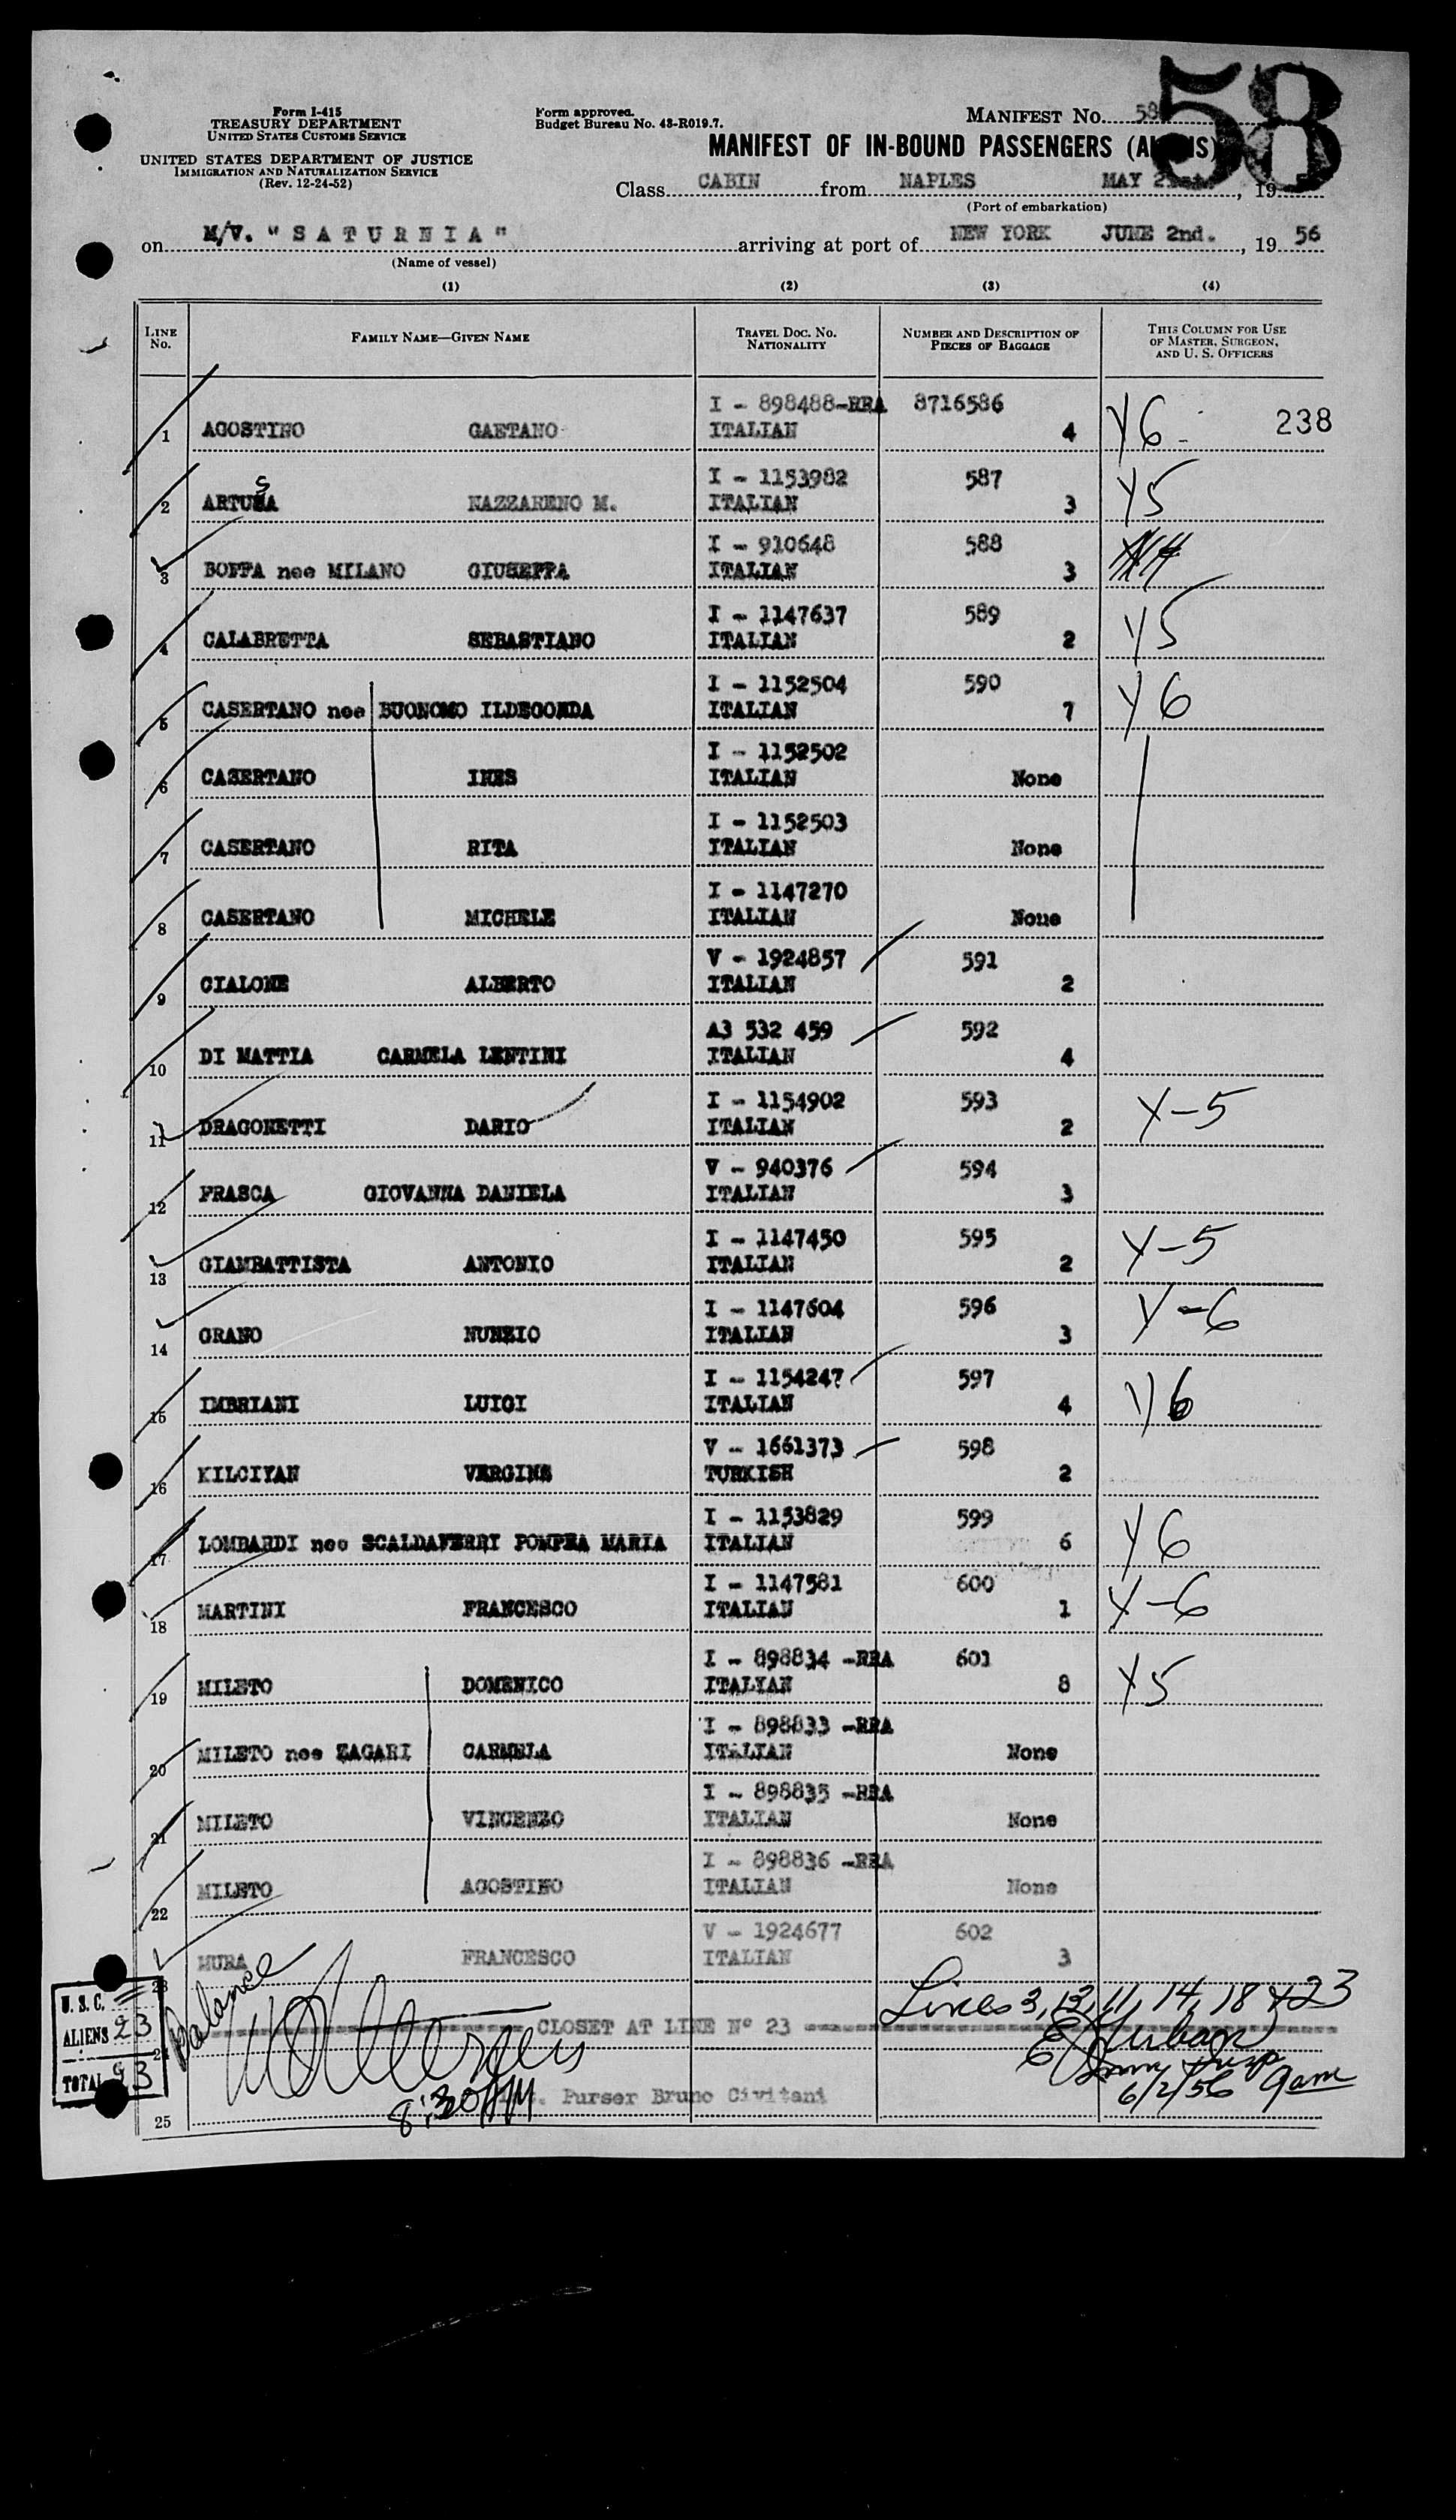 58
Form I-415
TREASURY DEPARTMENT
UNITED STATES CUSTOMS SERVICE
UNITED STATES DEPARTMENT OF JUSTICE
IMMIGRATION AND NATURALIZATION SERVICE
(Rev. 12-24-52)
Form approved.
Budget Bureau No. 43-R019.7.
MANIFEST No. 58
MANIFEST OF IN-BOUND PASSENGERS (ALIENS)
Class CABIN from NAPLES MAY , 19
(Port of embarkation)
on M/V. "SATURNIA" arriving at port of NEW YORK JUNE 2nd., 19 56
(Name of vessel)
(1) (2) (3) (4)
LINE No. FAMILY NAME—GIVEN NAME TRAVEL DOC. No. NATIONALITY NUMBER AND DESCRIPTION OF PIECES OF BAGGAGE THIS COLUMN FOR USE OF MASTER, SURGEON, AND U. S. OFFICERS
I - 898488-RRA 8716586
1 AGOSTINO GAETANO ITALIAN 4 Y6 238
I - 1153982 587
2 ARTUSA NAZZARENO M. ITALIAN 3 Y5
I - 910648 588
3 BOFFA nee MILANO GIUSEPPA ITALIAN 3
I - 1147637 589
4 CALABRETTA SEBASTIANO ITALIAN 2 Y5
I - 1152504 590
5 CASERTANO nee BUONOMO ILDEGONDA ITALIAN 7 Y6
I - 1152502
6 CASERTANO INES ITALIAN None
I - 1152503
7 CASERTANO RITA ITALIAN None
I - 1147270
8 CASERTANO MICHELE ITALIAN None
V - 1924857 591
9 CIALONE ALBERTO ITALIAN 2
A3 532 459 592
10 DI MATTIA CARMELA LENTINI ITALIAN 4
I - 1154902 593
11 DRAGONETTI DARIO ITALIAN 2 Y-5
V - 940376 594
12 FRASCA GIOVANNA DANIELA ITALIAN 3
I - 1147450 595
13 GIAMBATTISTA ANTONIO ITALIAN 2 Y-5
I - 1147604 596
14 GRANO NUNZIO ITALIAN 3 Y-6
I - 1154247 597
15 IMBRIANI LUIGI ITALIAN 4 Y6
V - 1661373 598
16 KILCIYAN VERGINE TURKISH 2
I - 1153829 599
17 LOMBARDI nee SCALDAFERRI POMPEA MARIA ITALIAN 6 Y6
I - 1147581 600
18 MARTINI FRANCESCO ITALIAN 1 Y-6
I - 898834 -RRA 601
19 MILETO DOMENICO ITALIAN 8 Y5
I - 898833 -RRA
20 MILETO nee ZAGARI CARMELA ITALIAN None
I - 898835 -RRA
21 MILETO VINCENZO ITALIAN None
I - 898836 -RRA
22 MILETO AGOSTINO ITALIAN None
V - 1924677 602
23 MURA FRANCESCO ITALIAN 3
Balance
Lines 3, 13, 11, 14, 18 & 23
U. S. C.
ALIENS 23
TOTAL 23
24 CLOSET AT LINE N° 23
6/2/56 9am
8:30 AM
Purser Bruno Civitani
25